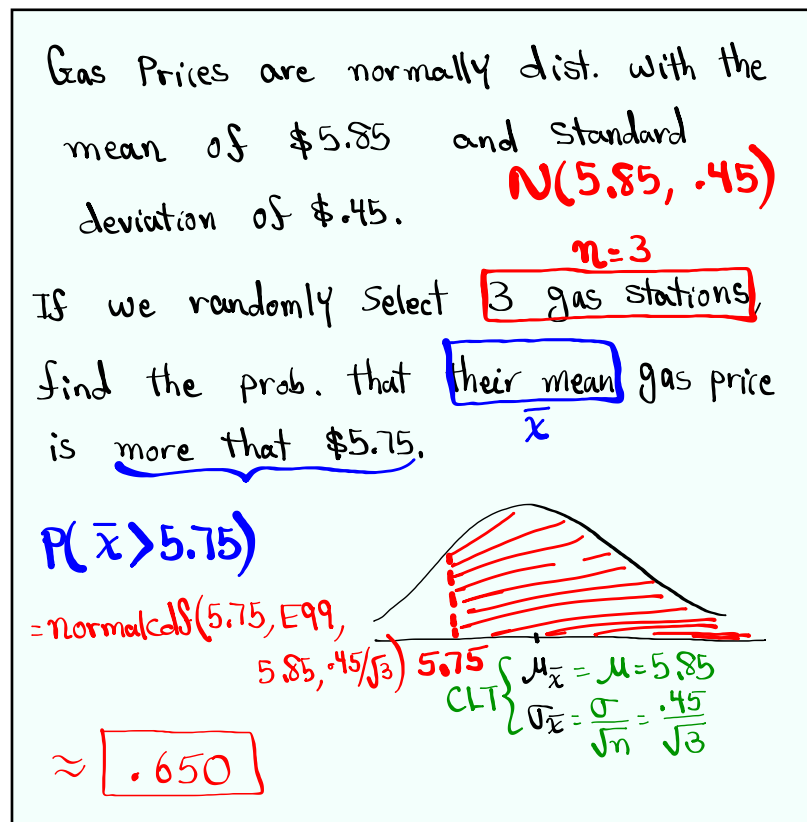 Gas Prices are normally dist. with the
mean of $5.85 and standard
deviation of $.45.
N(5.85, .45)
n=3
If we randomly Select 3 gas stations,
find the prob. that their mean gas price
x̄
is more that $5.75.
P(x̄>5.75)
=normalcdf(5.75, E99,
5.85, .45/√3)
5.75
CLT { μx̄ = μ = 5.85
σx̄ = σ/√n = .45/√3
≈ .650